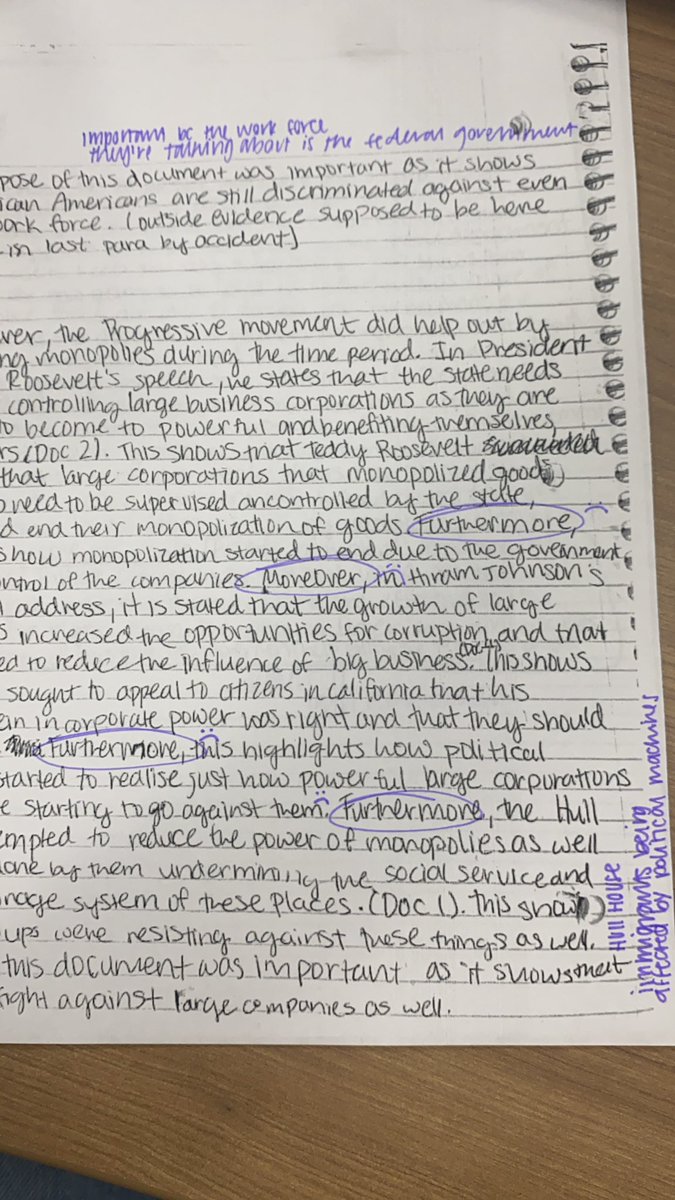 important bc the work force
they're talking about is the federal government
pose of this document was important as it shows
ican Americans are still discriminated against even
ork force. (outside evidence supposed to be here
in last para by accident]
ver, the Progressive movement did help out by
ng monopolies during the time period. In President
Roosevelt's speech, he states that the state needs
controlling large business corporations as they are
o become to powerful and benefiting themselves
rs (Doc 2). This shows that Teddy Roosevelt
that large corporations that monopolized goods
o need to be supervised ancontrolled by the state,
d end their monopolization of goods. Furthermore,
show monopolization started to end due to the government
ntrol of the companies. Moreover, in Hiram Johnson's
l address, it is stated that the growth of large
s increased the opportunities for corruption, and that
ed to reduce the influence of big business. This shows
sought to appeal to citizens in california that his
an in corporate power was right and that they should
Furthermore, this highlights how political
started to realise just how powerful large corporations
e starting to go against them. Furthermore, the Hull
empted to reduce the power of monopolies as well
one by them undermining the social service and
nage system of these places. (Doc 1). This show
ups were resisting against these things as well.
this document was important as it shows that
fight against large companies as well.
HUll HOUSE
immigrants being
affected by political machines